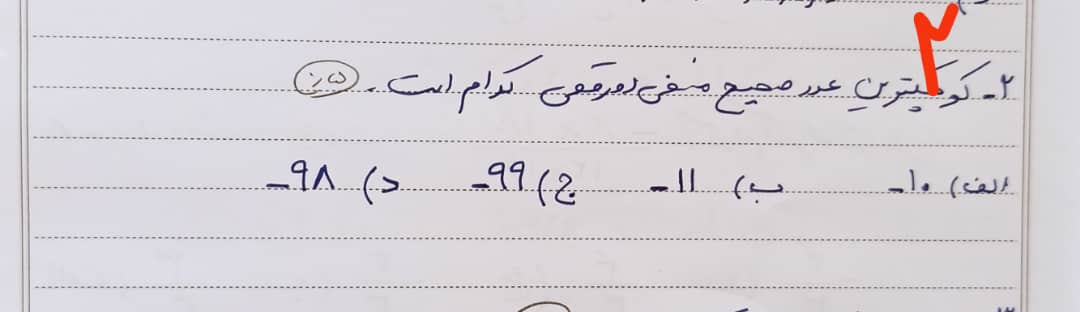 ۲
۲- کوچکترین عدد صحیح منفی دورقمی کدام است. (۰/۵)
الف) ۱۰- ب) ۱۱- ج) ۹۹- د) ۹۸-